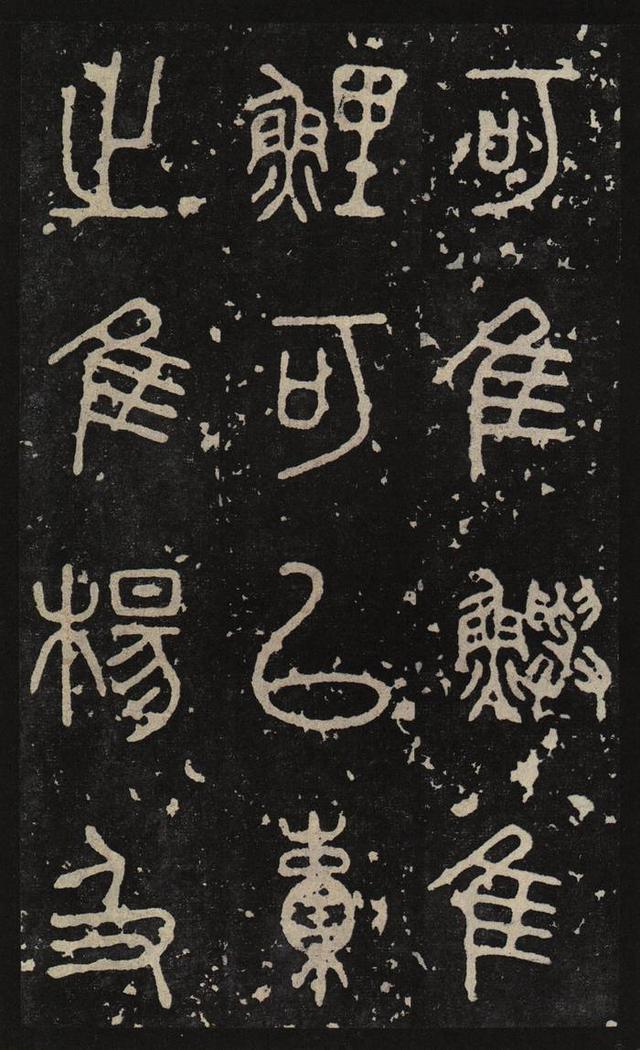 可隹鱮隹
鯉可㠯橐
之隹楊及